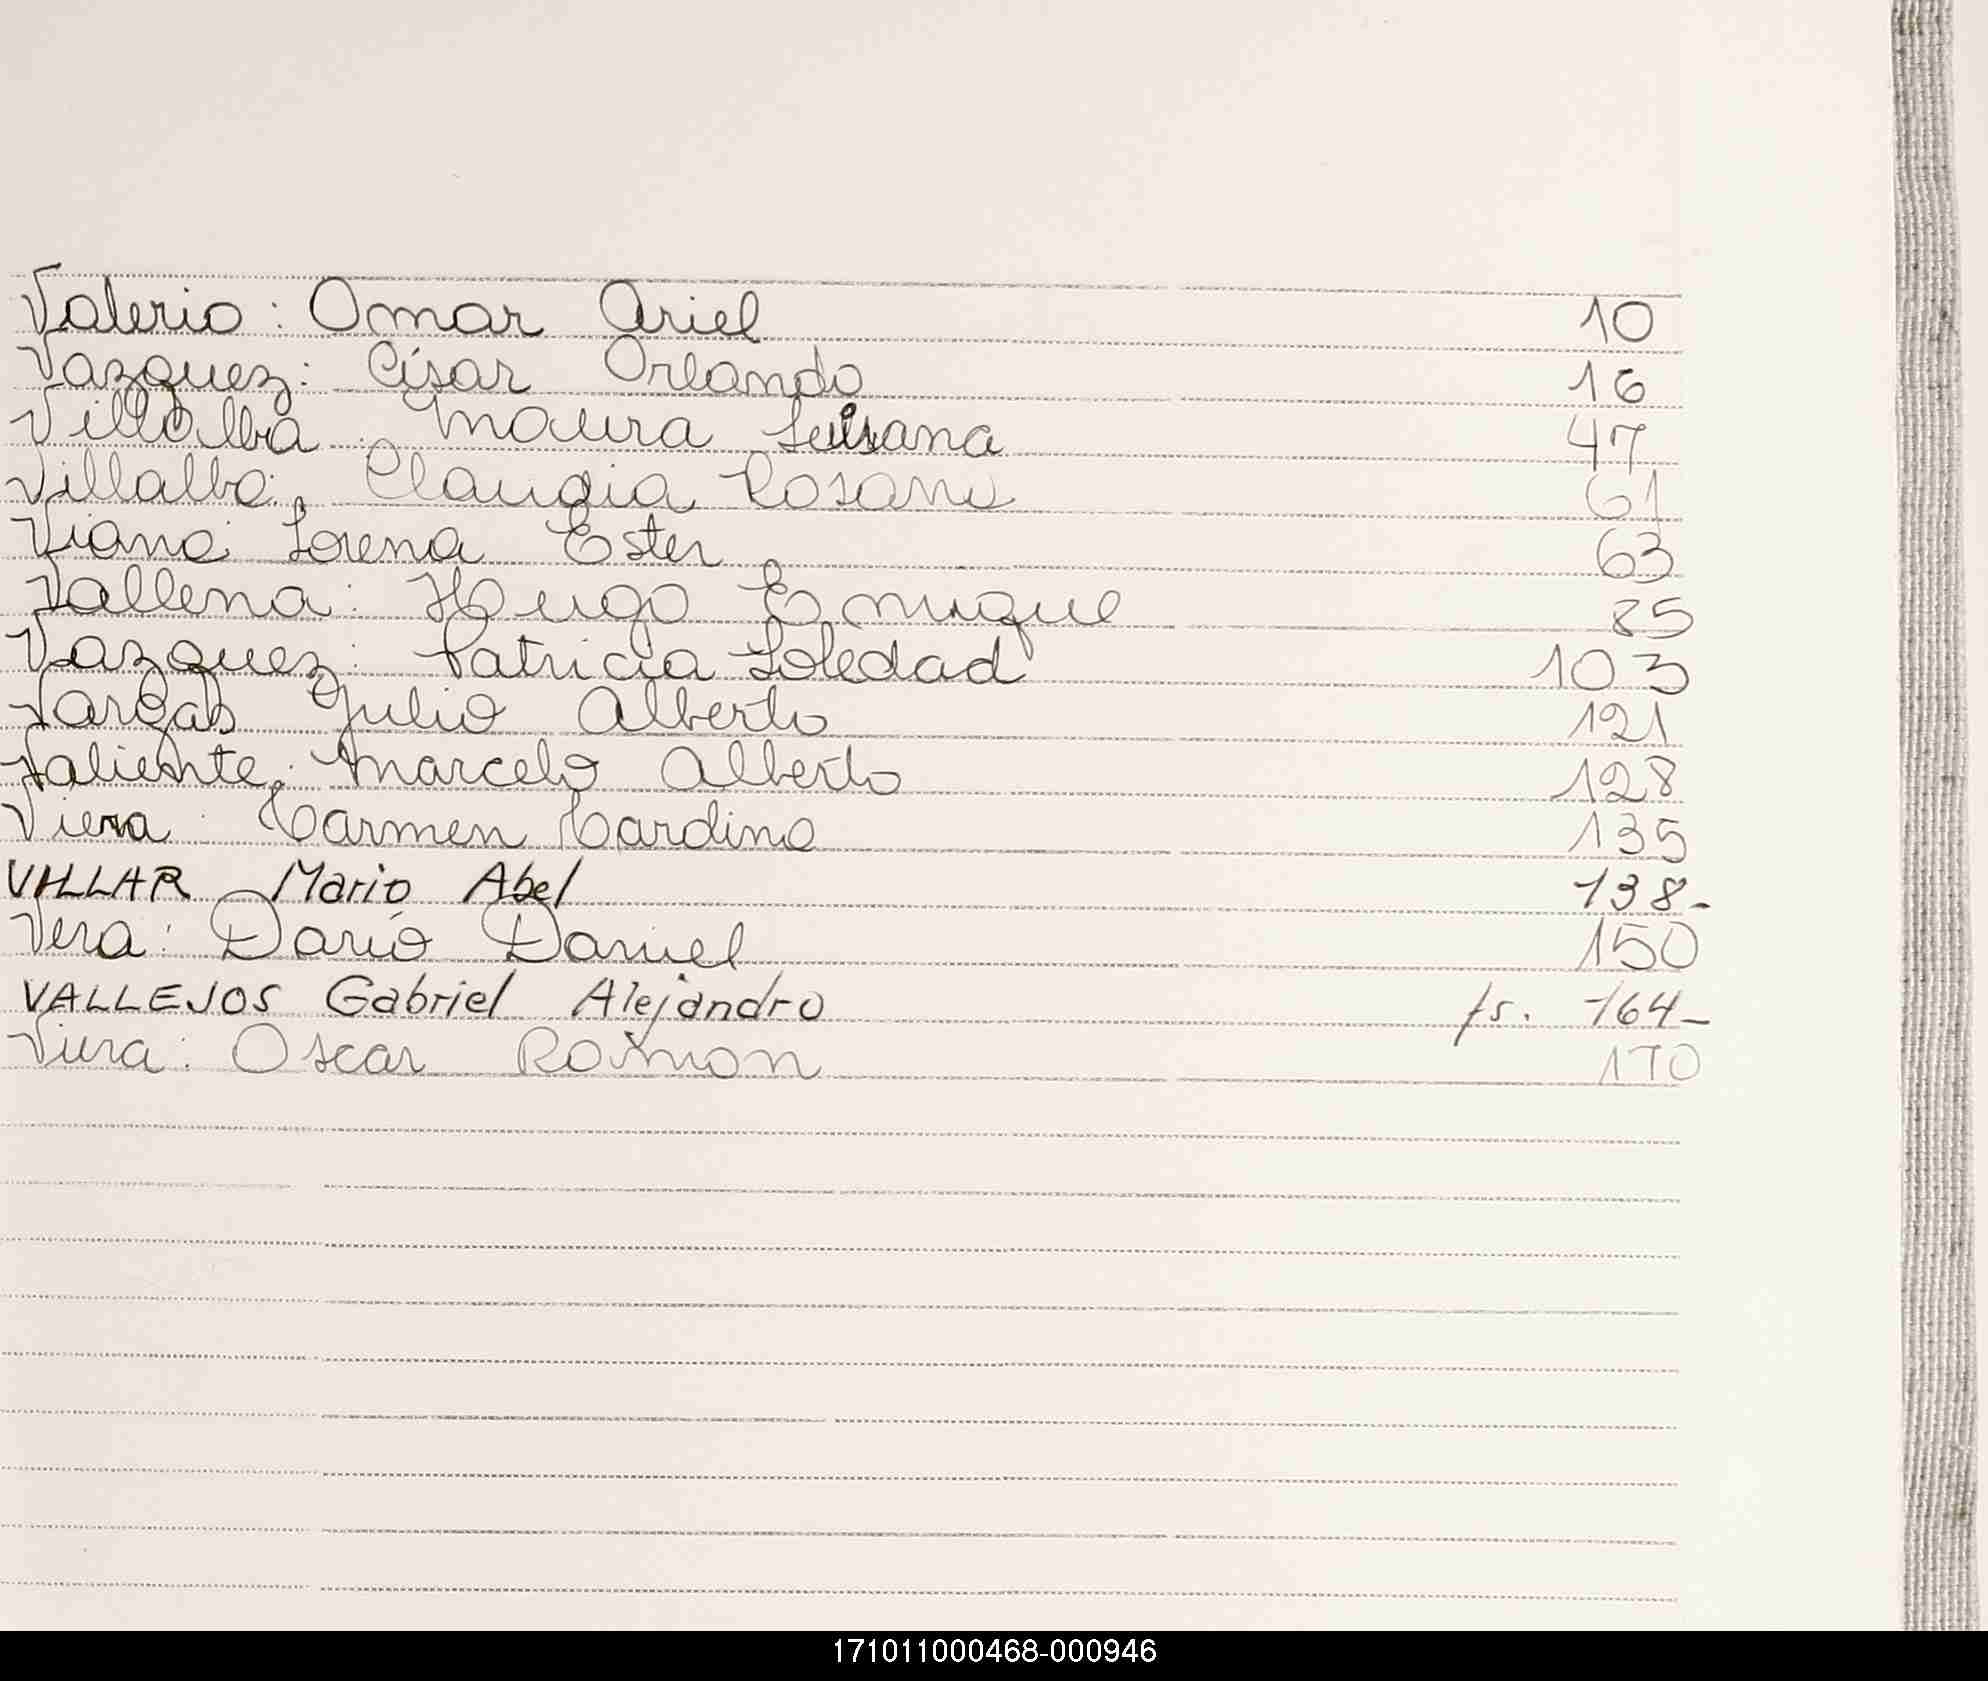 Valerio: Omar Ariel 10
Vazquez: César Orlando 16
Villalba Maura Luisana 47
Villalba, Claudia Rosana 61
Viana Lorena Ester 63
Vallena: Hugo Enrique 85
Vazquez: Patricia Soledad 103
Vargas Julio Alberto 121
Valiente, Marcelo Alberto 128
Viera Carmen Cardina 135
VILLAR Mario Abel 138-
Vera: Darío Daniel 150
VALLEJOS Gabriel Alejandro fs. 164-
Viera: Oscar Ramon 170
171011000468-000946